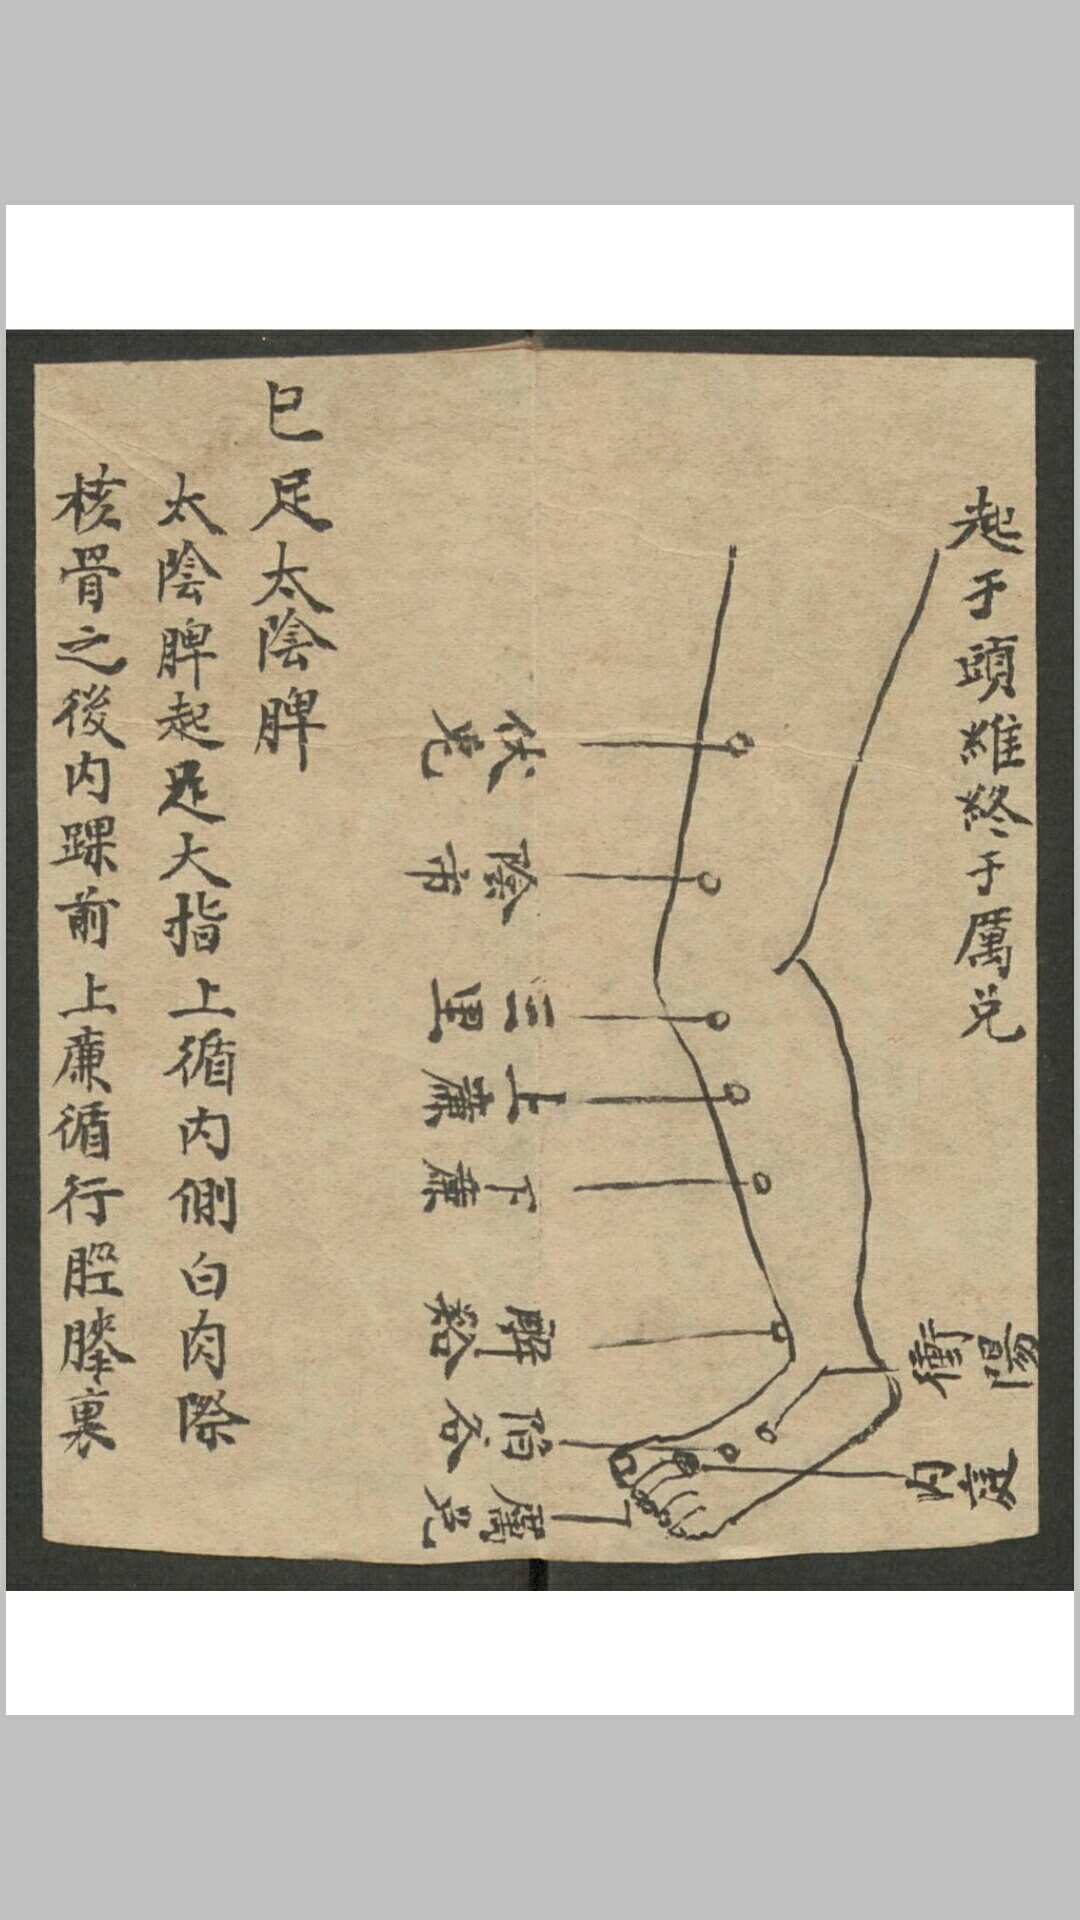 起于頭維終于厲兑
衝陽
内庭
伏兔
陰市
三里
上廉
下廉
解谿
陷谷
厲兑
巳足太陰脾
太陰脾起足大指上循内側白肉際
核骨之後内踝前上廉循行脛膝裏